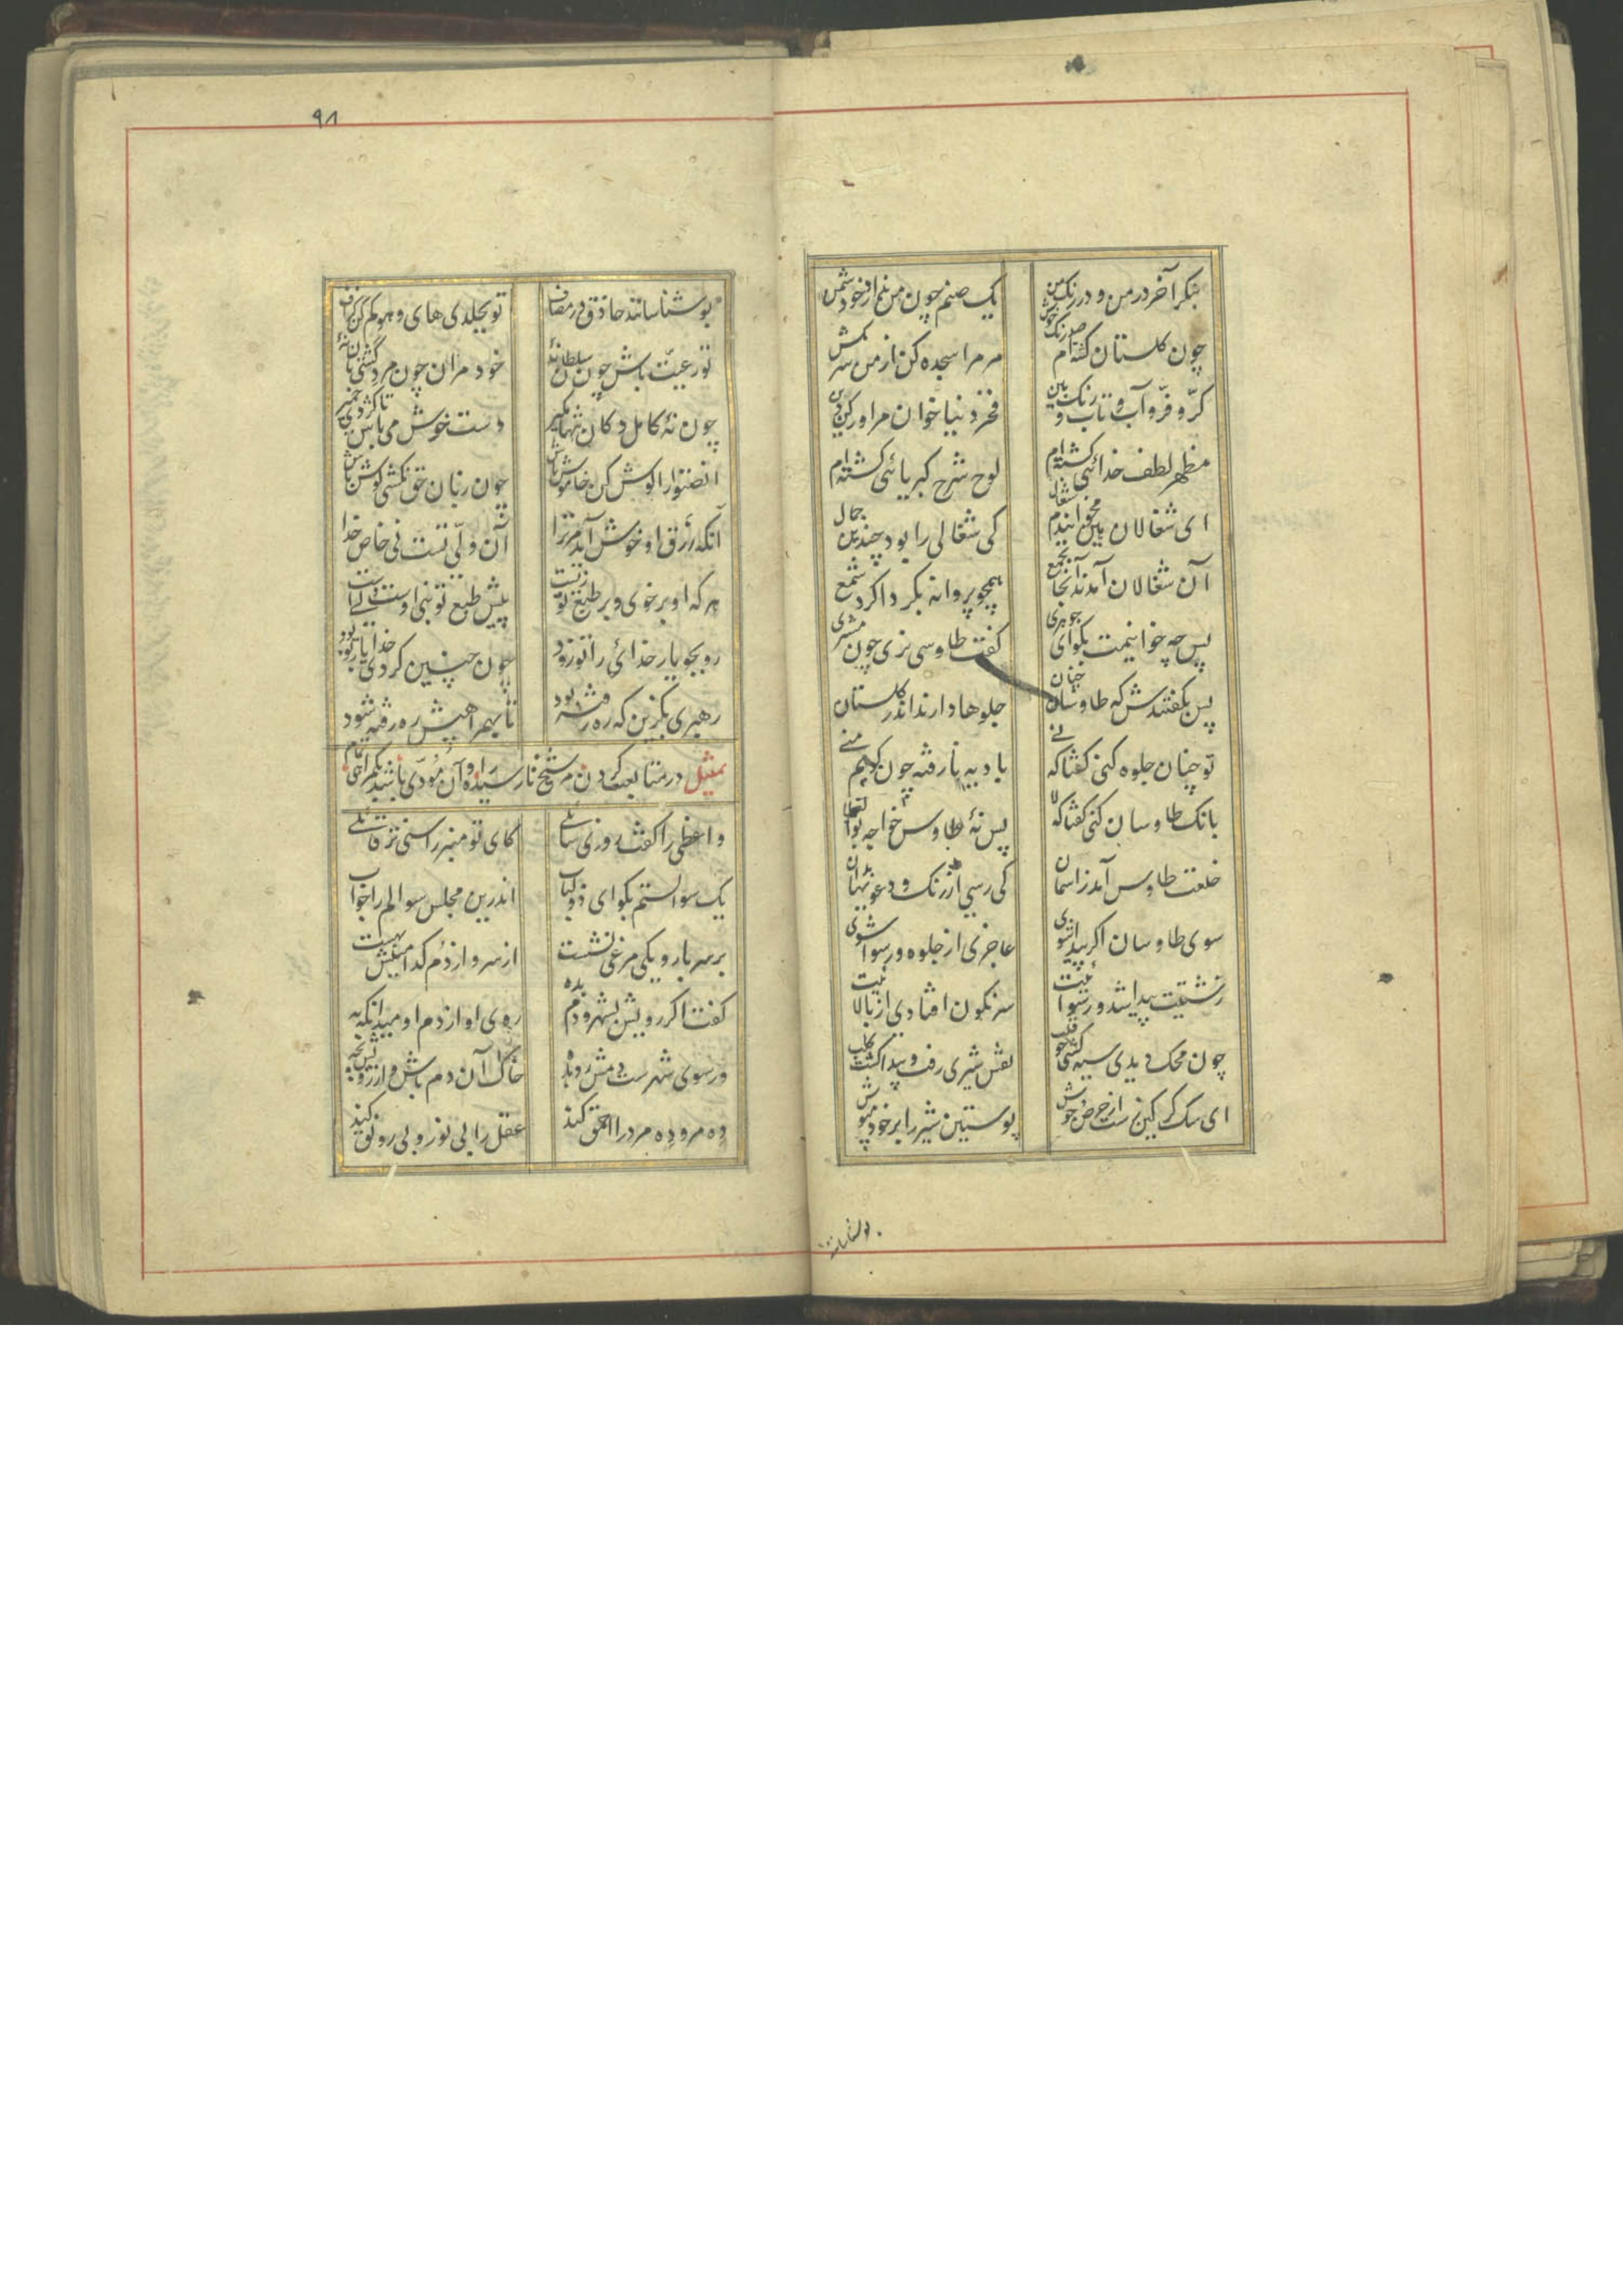 بنکر آخر در من و در رنک من یک صنم چون من ندارد خود شمن
چون کلستان کشته‌ام صد رنک خوش مر مرا سجده کن از من سر مکش
کرّ و فرّ و آب و تاب و رنک بین فخر دنیا خوان مرا و رکن دین
مظهر لطف خدائی کشته‌ام لوح شرح کبریائی کشته‌ام
ای شغالان هین مخوانیدم شغال کی شغالی را بود چندین جمال
آن شغالان آمدند آنجا بجمع همچو پروانه بکرداکرد شمع
پس چه خوانیمت بکو ای جوهری کفت طاوسی نری چون مشتری
پس بکفتندش که طاوسان جنان جلوها دارند اندر کلستان
تو چنان جلوه کنی کفتا که نی بادیه نارفته چون کویم منی
بانک طاوسان کنی کفتا که لا پس نهٔ طاوس خواجه بوالعلا
خلعت طاوس آمد ز اسمان کی رسی از رنک و دعویها بدان
سوی طاوسان اکر پیدا شوی عاجزی از جلوه و رسوا شوی
زشتیت پیدا شد و رسوائیت سرنکون افتادی از بالائیت
چون محک دیدی سیه کشتی چو قلب نقش شیری رفت و پیدا کشت کلب
ای سک کرکین زشت از حرص و جوش پوستین شیر را بر خود مپوش
۹۸
بو شناسانند حاذق در مصاف تو بجلدی های و هو کم کن کزاف
تو رعیّت باش چون سلطان نهٔ خود مران چون مرد کشتی‌بان نهٔ
چون نهٔ کامل دکان تنها مکیر دست خوش می‌باش تا کردی خمیر
انصتوا را کوش کن خاموش باش چون زبان حق نکشتی کوش باش
آنکه زرق او خوش آید مر ترا آن ولّی تست نی خاص خدا
هر که او بر خوی و بر طبع تو زیست پیش طبع تو نبی است و ولیست
رو بجو یار خدائی را تو زود چون چنین کردی خدا یار تو بود
رهبری بکزین که ره رفته بود تا بهمراهیش ره رفته شود
تمثیل در متابعت کردن مر شیخ نارسیده را و آن مؤدّی باشد بکمراهی تمام
واعظی را کفت روزی سائلی کای تو منبر را سنی‌تر قائلی
یک سوالستم بکو ای ذو لباب اندرین مجلس سوالم را جواب
بر سر بارو یکی مرغی نشست از سر و از دُم کدامینش بهست
کفت اکر رویش بشهر و دم بده روی او از دم او میدان که به
ور سوی شهر ست دمش رو بده خاک آن دم باش و از رویش بجه
دِه مرو دِه مرد را احمق کند عقل را بی نور و بی رونق کند